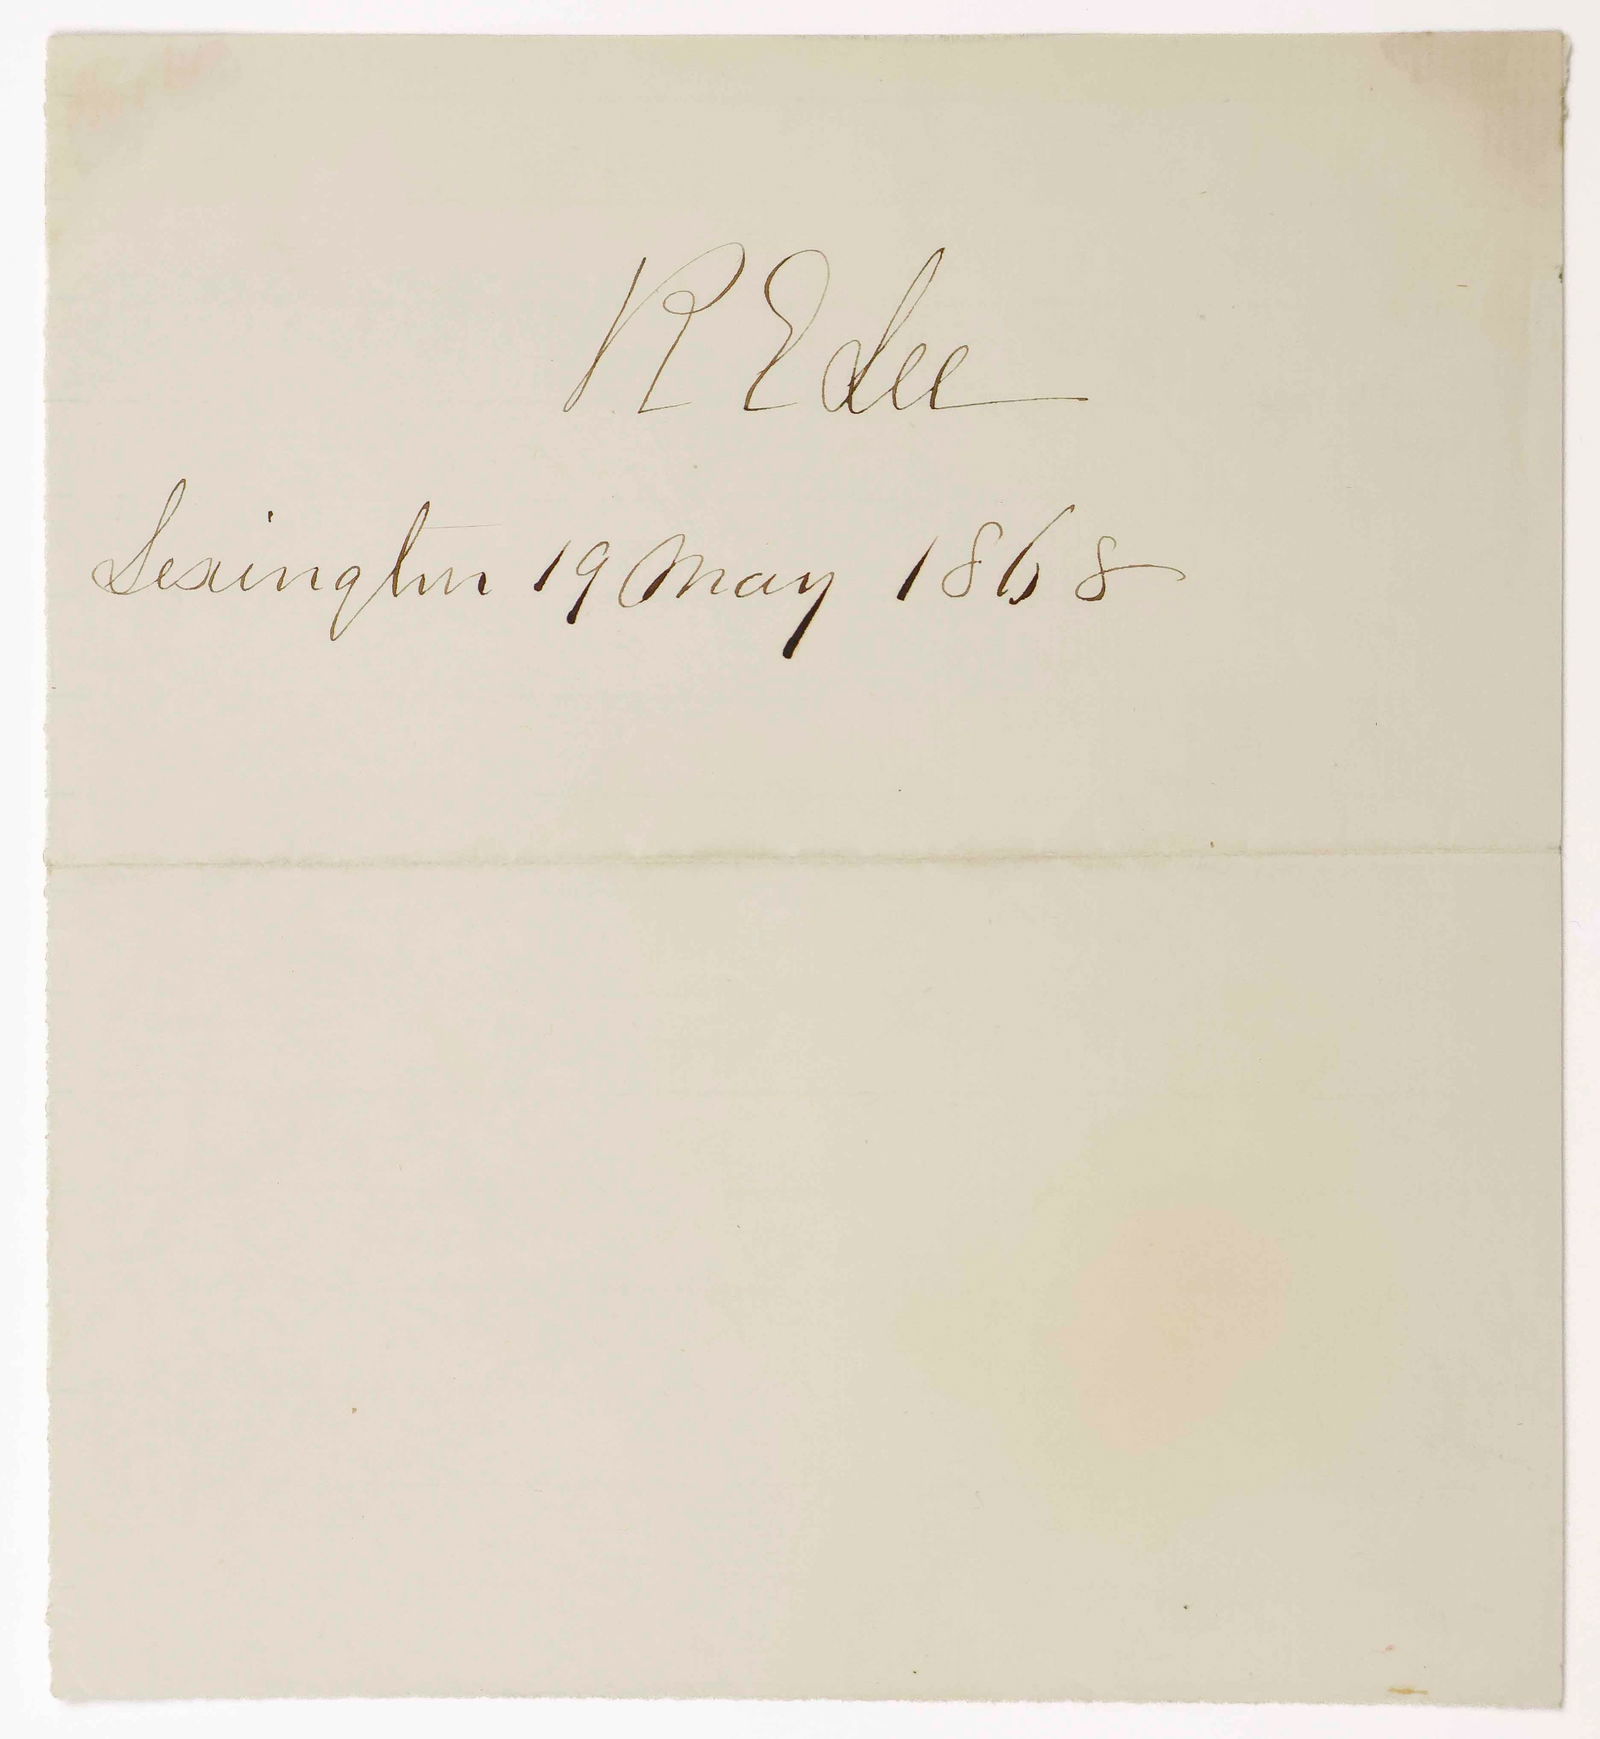 R E Lee
Lexington 19 May 1868